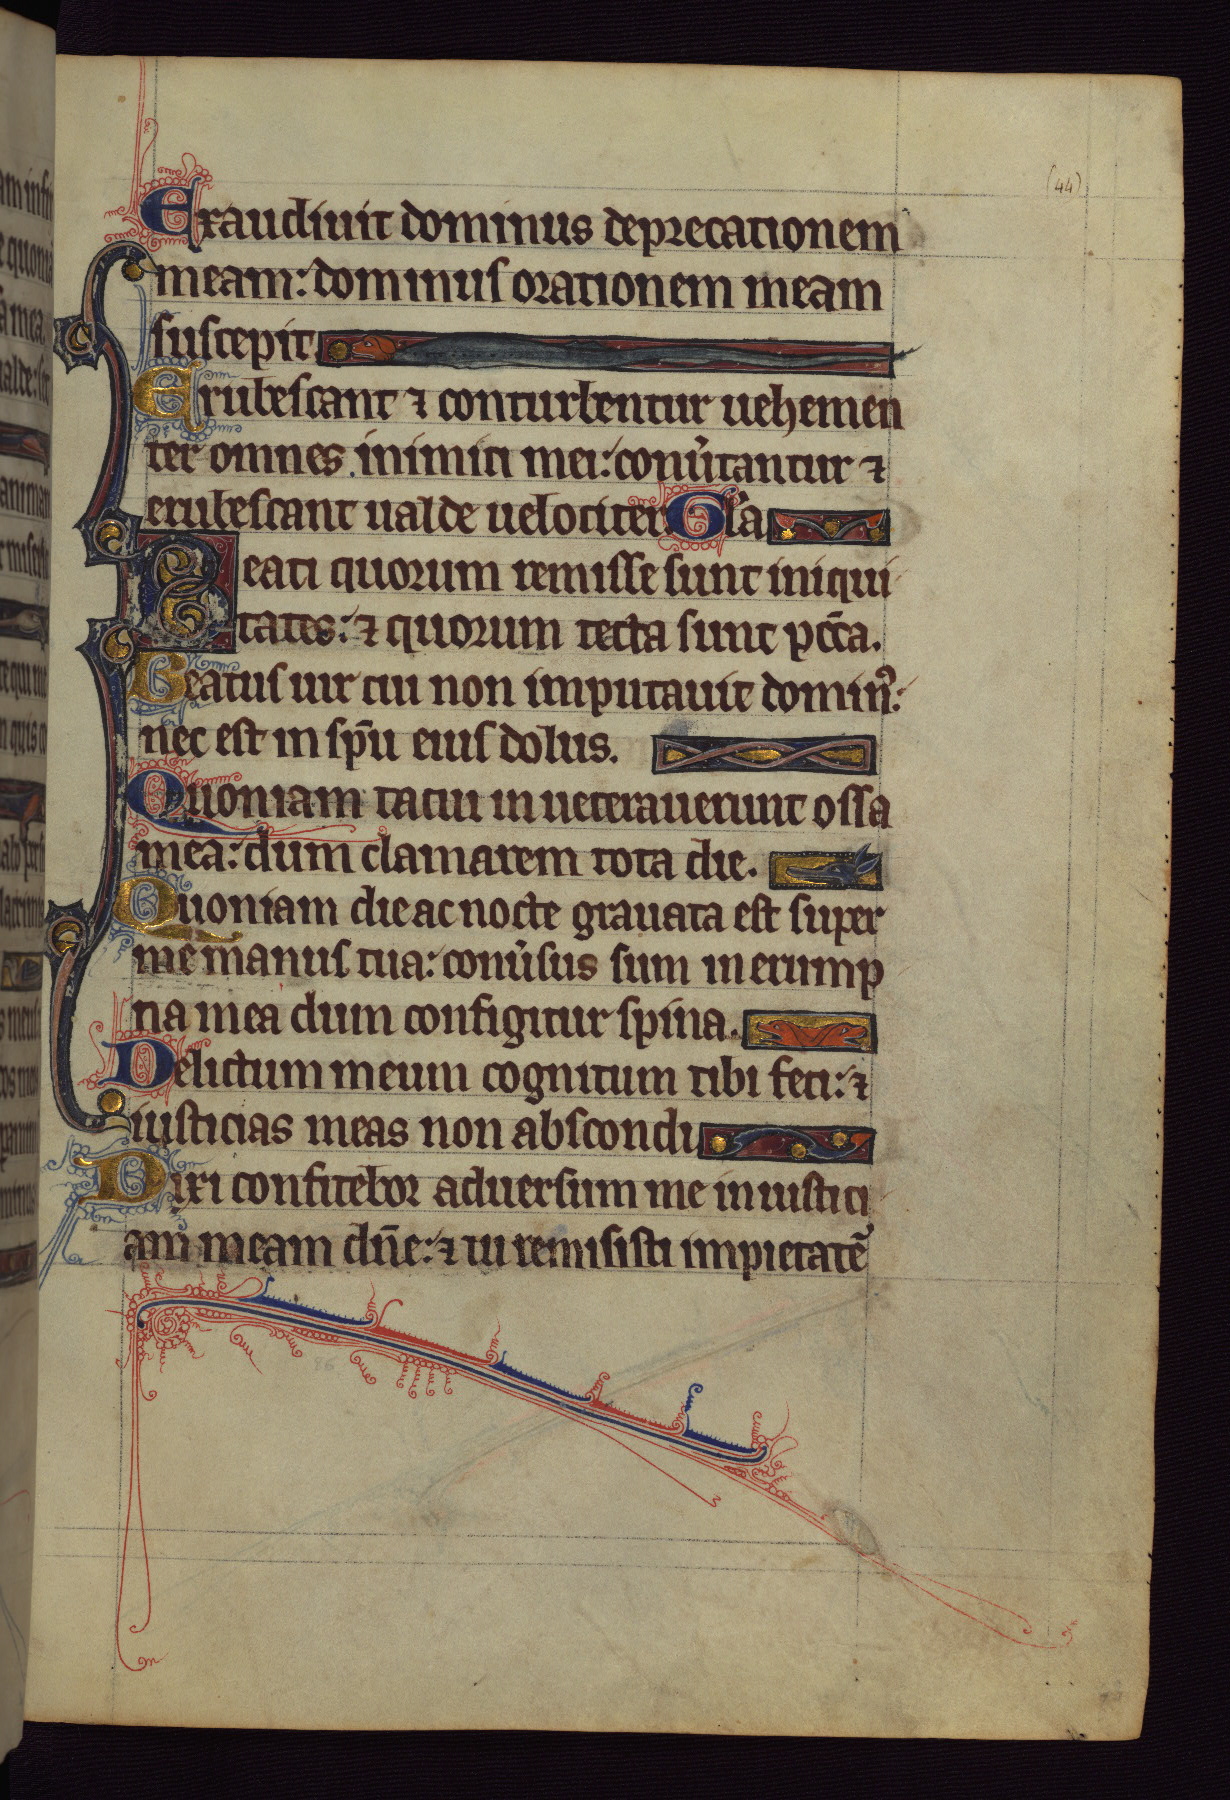 (44)
Exaudiuit dominus deprecationem
meam: dominus orationem meam
suscepit
Erubescant ⁊ conturbentur uehemen
ter omnes inimici mei: conu̾tantur ⁊
erubescant ualde uelociter. Gl̄a
Beati quorum remisse sunt iniqui
tates: ⁊ quorum tecta sunt pc̄c̄a.
Beatus uir cui non imputauit dominꝰ:
nec est in sp̄u eius dolus.
Quoniam tacui inueterauerunt ossa
mea: dum clamarem tota die.
Quoniam die ac nocte grauata est super
me manus tua: conu̾sus sum in erump
na mea dum configitur spina.
Delictum meum cognitum tibi feci: ⁊
iusticias meas non abscondi
Dixi confitebor aduersum me iniustici
am meam dn̄e: ⁊ tu remisisti impietatē